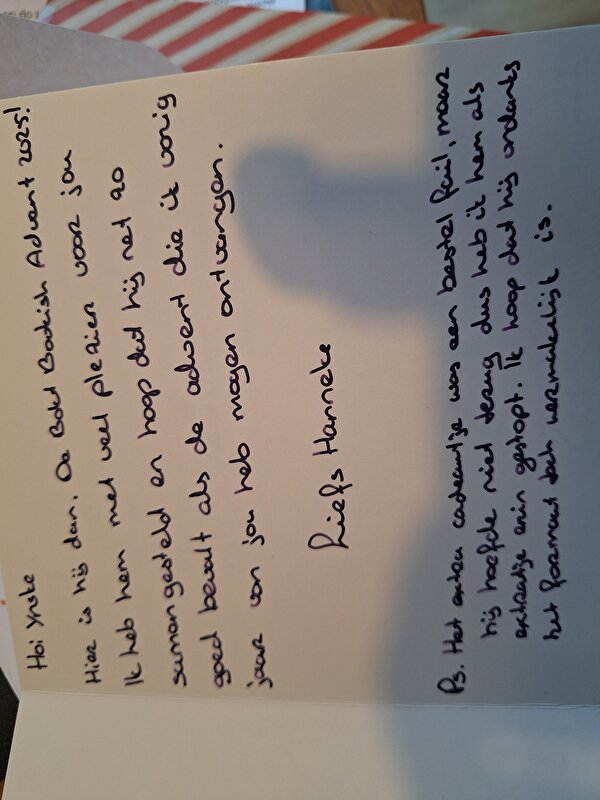 Hoi Ynske
Hier is hij dan. De Boist Bookish Advent 2025!
Ik heb hem met veel plezier voor jou
samengesteld en hoop dat hij net zo
goed bevalt als de advent die ik vorig
jaar van jou heb mogen ontvangen.
Liefs Hanneke
Ps. Het extra cadeautje was een bestel fail, maar
hij hoefde niet terug dus heb ik hem als
extraatje erin gestopt. Ik hoop dat hij ondanks
het formaat toch vermakelijk is.